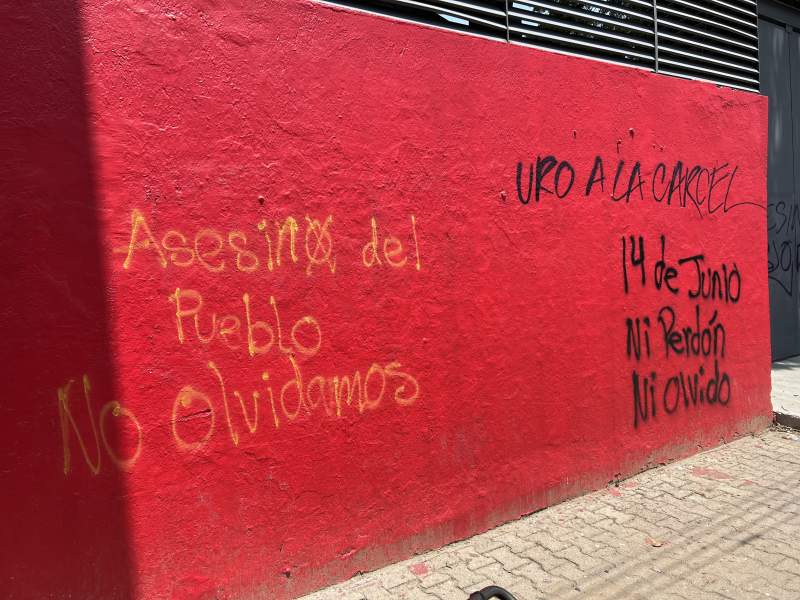 Asesino del
Pueblo
No Olvidamos
URO A LA CARCEL
14 de Junio
Ni Perdón
Ni olvido